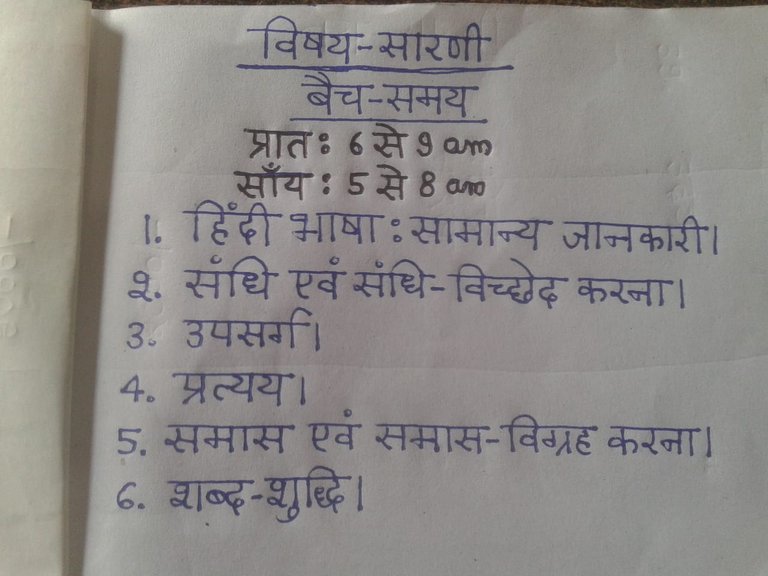 विषय-सारणी
बैच-समय
प्रात: 6 से 9 am
साँय : 5 से 8 am
1. हिंदी भाषा : सामान्य जानकारी।
2. संधि एवं संधि-विच्छेद करना।
3. उपसर्ग।
4. प्रत्यय।
5. समास एवं समास-विग्रह करना।
6. शब्द-शुद्धि।